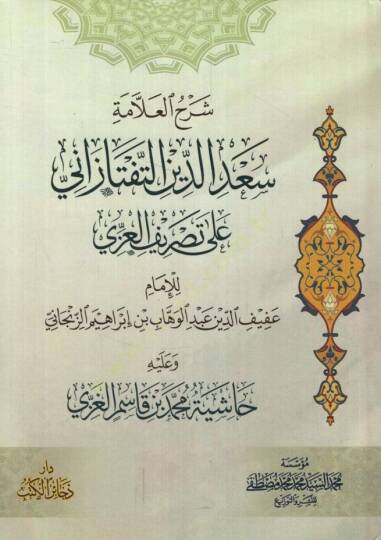 شَرْحُ العَلَّامَةِ
سَعْدِ الدِّينِ التَّفْتَازَانِيِّ
عَلَى تَصْرِيفِ العِزِّي
لِلْإِمَامِ
عَفِيفِ الدِّينِ عَبْدِ الوَهَّابِ بْنِ إِبْرَاهِيمَ الزَّنْجَانِيِّ
وَعَلَيْهِ
حَاشِيَةُ مُحَمَّدِ بْنِ قَاسِمِ الغَزِّيِّ
مُؤَسَّسَة
مُحَمَّد السَّيِّد مُحَمَّد مُصْطَفَى
لِلنَّشْرِ وَالتَّوْزِيعِ
دَار
ذَخَائِرِ الكُتُبِ